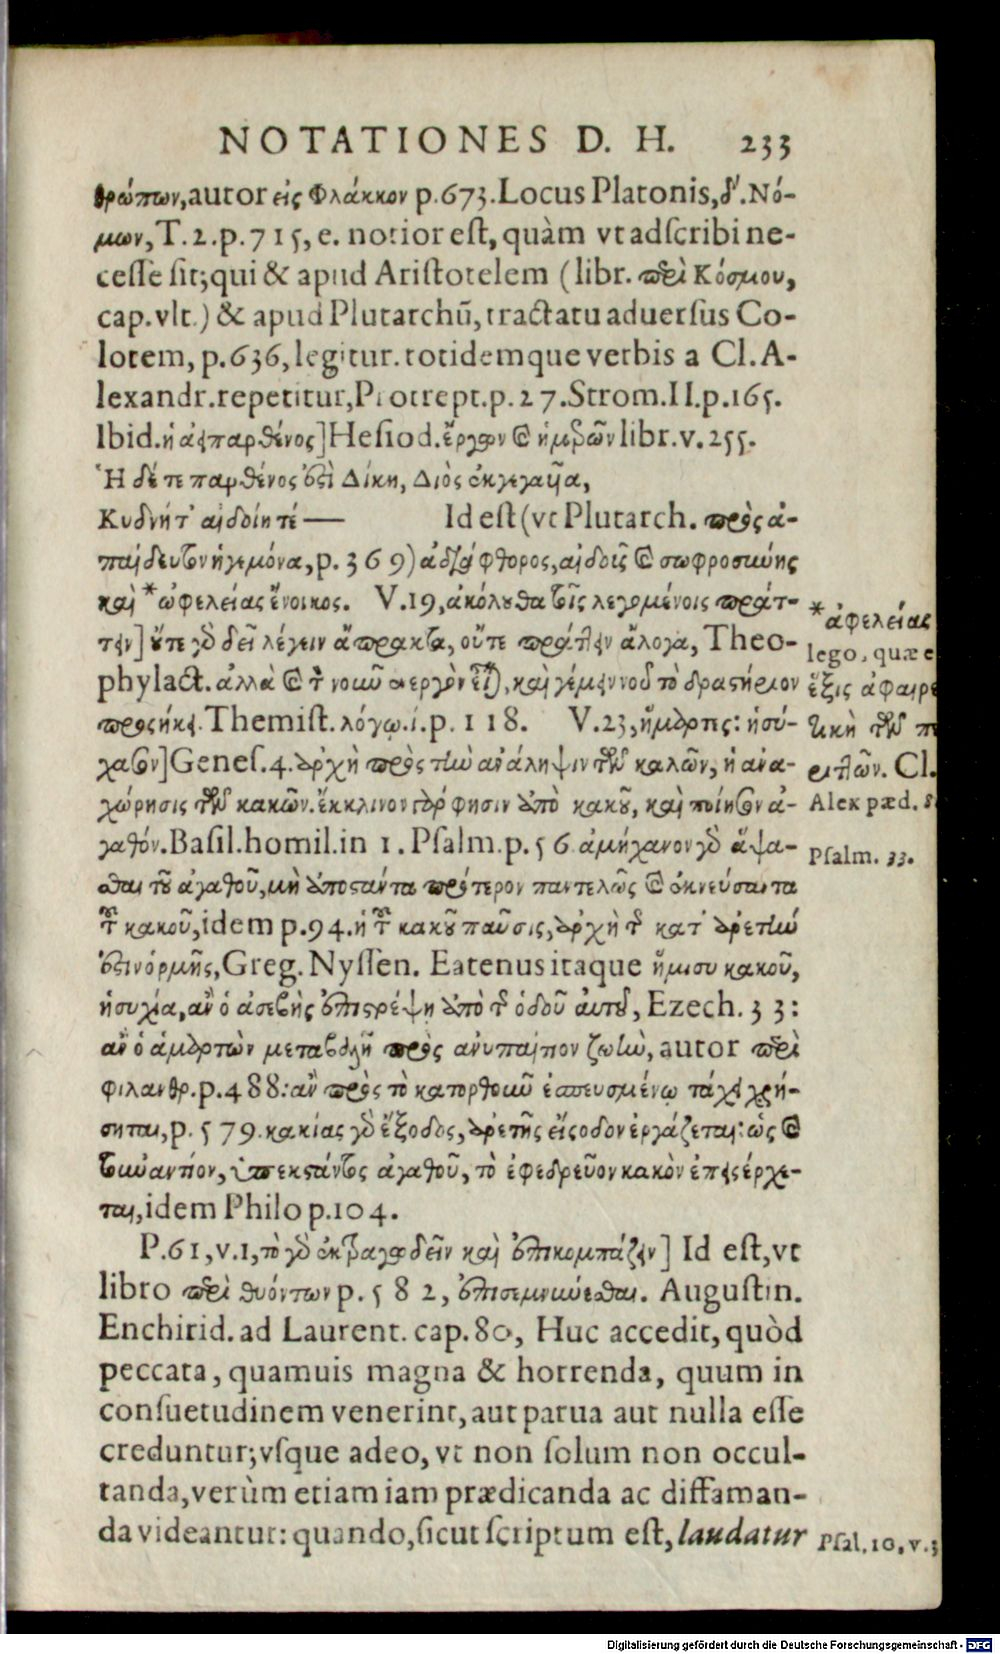 NOTATIONES D. H. 233
θρώπων, autor εἰς Φλάκκον p.673. Locus Platonis, δ'. Νό-
μων, T.2.p.715, e. notior est, quàm vt adscribi ne-
cesse sit; qui & apud Aristotelem (libr. περὶ Κόσμου,
cap.vlt.) & apud Plutarchū, tractatu aduersus Co-
lotem, p.636, legitur. totidemque verbis a Cl. A-
lexandr. repetitur, Protrept.p.27. Strom.II.p.165.
Ibid. ἡ ἀϊπαρθένος] Hesiod. ἔργων καὶ ἡμερῶν libr.v.255.
Ἡ δέ τε παρθένος ἐστὶ Δίκη, Διὸς ἐκγεγαυῖα,
Κυδνή τ' αἰδοίη τέ —— Id est (vt Plutarch. πρὸς ἀ-
παίδευτον ἡγεμόνα, p.369) ἀδιάφθορος, αἰδοῦς καὶ σωφροσιύης
καὶ *ὠφελείας ἔνοικος. V.19, ἀκόλουθα τοῖς λεγομένοις πράτ-
τειν] οὔτε γὰρ δεῖ λέγειν ἄπρακτα, οὔτε πράττειν ἄλογα, Theo-
phylact. ἀλλὰ καὶ τὸν νοιωῦ αεργὸν εἶναι, καὶ γέμειν νοῦ τὸ δραστήριον
προσήκει. Themist. λόγῳ.ί.p. 118. V.23, ἥμαρτες: ἡσύ-
χασον] Genes.4. ἀρχὴ πρὸς τὴν ἀνάληψιν τῶν καλῶν, ἡ ἀνα-
χώρησις τῶν κακῶν. ἔκκλινον γάρ φησιν ἀπὸ κακοῦ, καὶ ποίησον ἀ-
γαθόν. Basil.homil.in 1. Psalm.p.56 ἀμήχανον γὰρ ἅψα-
σθαι τοῦ ἀγαθοῦ, μὴ ἀποστάντα πρότερον παντελῶς καὶ ἐκνεύσαντα
τοῦ κακοῦ, idem p.94. ἡ τοῦ κακοῦ παῦσις, ἀρχὴ τῆς κατ' ἀρετὴν
ἐστιν ὁρμῆς, Greg. Nyssen. Eatenus itaque ἥμισυ κακοῦ,
ἡσυχία, ἂν ὁ ἀσεβὴς ἐπιστρέψῃ ἀπὸ τῆς ὁδοῦ αὐτοῦ, Ezech. 33:
ἂν ὁ ἁμαρτὼν μεταβάλῃ πρὸς ἀνυπαίτιον ζωὴν, autor περὶ
φιλανθρ.p.488: ἂν πρὸς τὸ κατορθοῦν ἐσπευσμένῳ τάχει χρή-
σηται, p.579. κακίας γὰρ ἔξοδος, ἀρετῆς εἴσοδον ἐργάζεται: ὡς καὶ
τοὐναντίον, ὑπεκστάντος ἀγαθοῦ, τὸ ἐφεδρεῦον κακὸν ἐπεισέρχε-
ται, idem Philo p.104.
P.61, v.1, τὸ γὰρ ἐκτραγῳδεῖν καὶ ἐπικομπάζειν] Id est, vt
libro περὶ θυόντων p. 582, ἐπισεμνύεσθαι. Augustin.
Enchirid. ad Laurent. cap.80, Huc accedit, quòd
peccata, quamuis magna & horrenda, quum in
consuetudinem venerint, aut parua aut nulla esse
creduntur; vsque adeo, vt non solum non occul-
tanda, verùm etiam iam prædicanda ac diffaman-
da videantur: quando, sicut scriptum est, laudatur
*ἀφελείας
lego, quæ e
ἕξις ἀφαιρε
τικὴ τῶν π
ριττῶν. Cl.
Alex pæd.
Psalm. 33.
Psal. 10, v.3
Digitalisierung gefördert durch die Deutsche Forschungsgemeinschaft - DFG